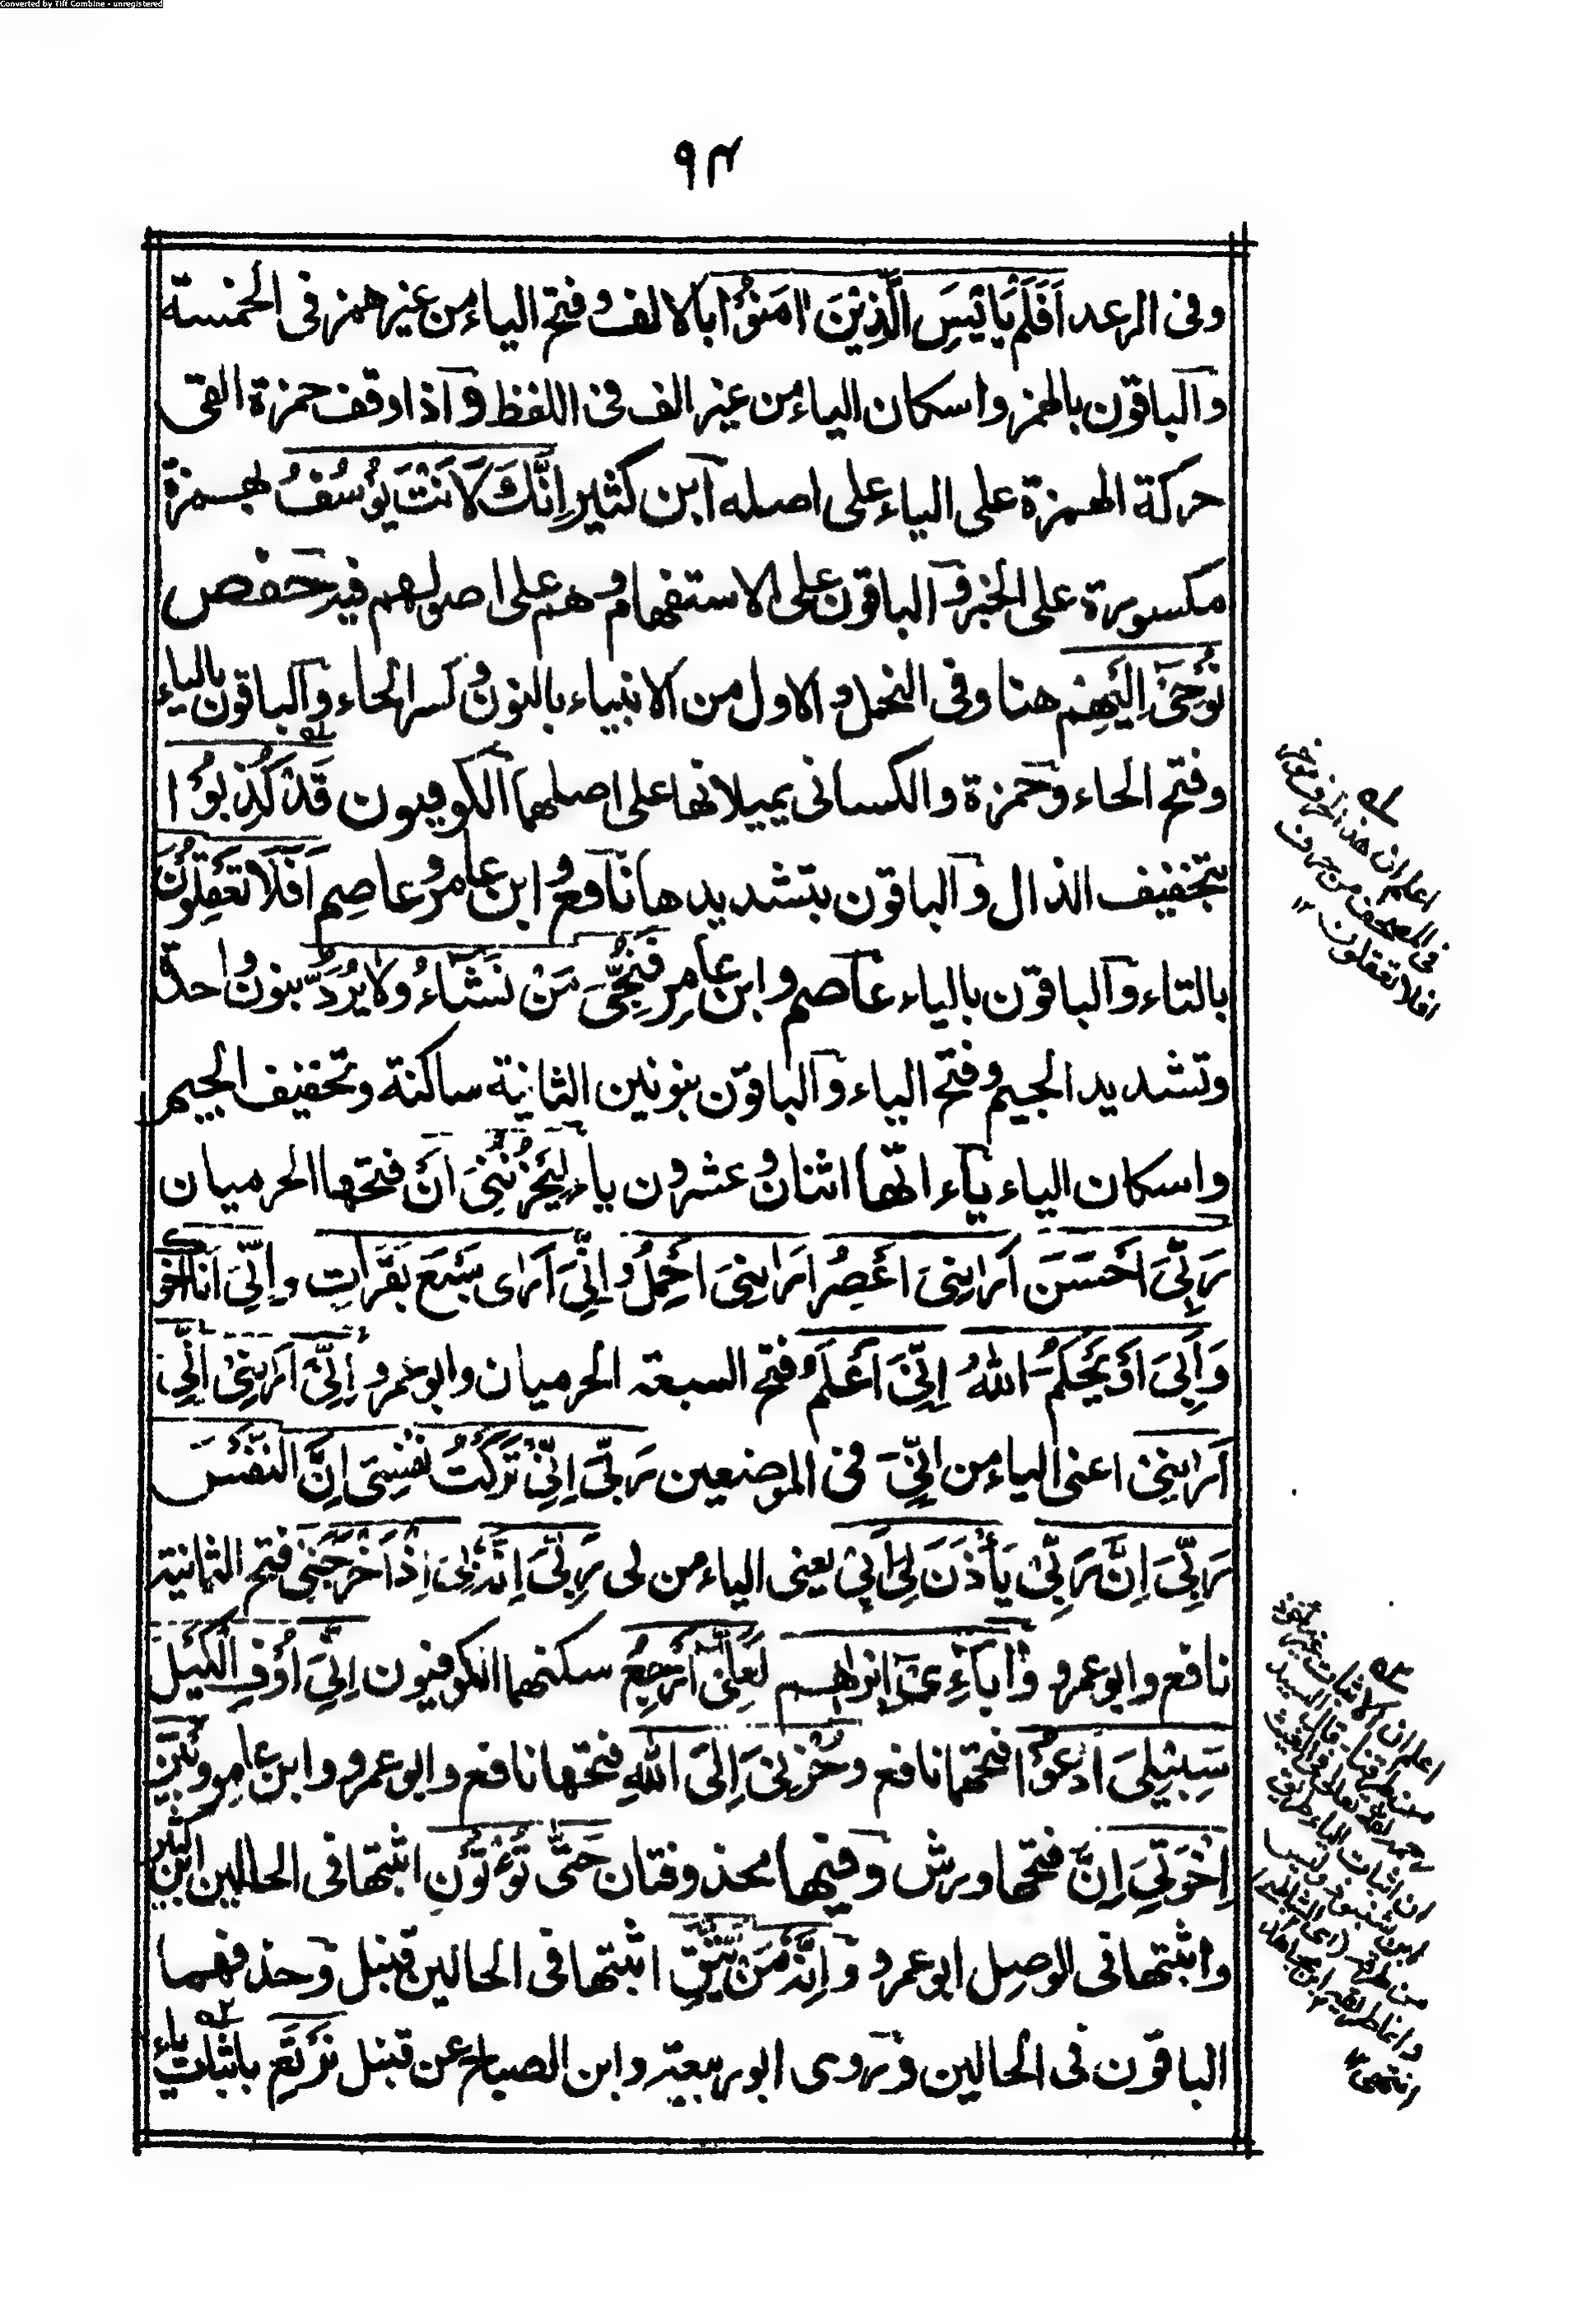 Converted by Tiff Combine - unregistered
٩٣
وفى الرعد اَفَلَمْ يَايَسِ الَّذِيْنَ اٰمَنُوْا بالالف وفتح الياء من غير همز فى الخمسة
والباقون بالهمز واسكان الياء من غير الف فى اللفظ واذا وقف حمزة القى
حركة الهمزة على الياء على اصله ابن كثير اِنَّكَ لَاَنْتَ يُوْسُفُ بهمزة
مكسورة على الخبر والباقون على الاستفهام وهم على اصولهم فيه حفص
نُوْحِىْ اِلَيْهِمْ هنا وفى النحل والاول من الانبياء بالنون وكسر الحاء والباقون بالياء
وفتح الحاء وحمزة والكسائى يميلانها على اصلهما الكوفيون قَدْ كُذِبُوْا
بتخفيف الذال والباقون بتشديدها نافع وابن عامر وعاصم اَفَلَا تَعْقِلُوْنَ
بالتاء والباقون بالياء عاصم وابن عامر فَنُجِّىَ مَنْ نَّشَآءُ وَلَا يُرَدُّ بنون واحدة
وتشديد الجيم وفتح الياء والباقون بنونين الثانية ساكنة وتخفيف الجيم
واسكان الياء ياءاتها اثنان وعشرون ياء لَيَحْزُنُنِىْ اَنْ فتحها الحرميان
رَبِّىْ اَحْسَنَ اَرَانِىْ اَعْصِرُ اَرَانِىْ اَحْمِلُ وَاِنِّىْ اَرٰى سَبْعَ بَقَرَاتٍ واِنِّىْ اَنَا اَخُوْكَ
وَاَبِىْ اَوْ يَحْكُمَ اللهُ اِنِّىْ اَعْلَمُ فتح السبعة الحرميان وابو عمرو اِنِّىْ اَرٰىنِىْ اِنِّىْ
اَرٰىنِىْ اعنى الياء من اِنِّىْ فى الموضعين رَبِّىْ اِنِّىْ تَرَكْتُ نَفْسِىْ اِنَّ النَّفْسَ
رَبِّىْ اِنَّ رَبِّىْ يَأْذَنَ لِىْ اَبِىْ يعنى الياء من لى رَبِّىْ اِنَّهٗ بِىْ اِذْ اَخْرَجَنِىْ فتح الثمانية
نافع وابو عمرو وَاٰبَآءِىْ اِبْرٰهِيْمَ لَعَلِّىْ اَرْجِعُ سكنهما الكوفيون اَنِّىْ اُوْفِ الْكَيْلَ
سَبِيْلِىْ اَدْعُوْا فتحهما نافع وحُزْنِىْ اِلَى اللهِ فتحها نافع وابو عمرو وابن عامر وبَيْنَ
اِخْوَتِىْ اِنَّ فتحها ورش وفيها محذوفتان حَتّٰى تُؤْتُوْنِ اثبتها فى الحالين ابن كثير
واثبتها فى الوصل ابو عمرو واِنَّهٗ مَنْ يَّتَّقِ اثبتها فى الحالين قنبل وحذفهما
الباقون فى الحالين وروى ابو ربيعة وابن الصباح عن قنبل نَرْتَعِ باثبات ياء
اعلم ان هذا الحرف مؤخر
فى المصحف من حرف
افلا تعقلون
انتهى